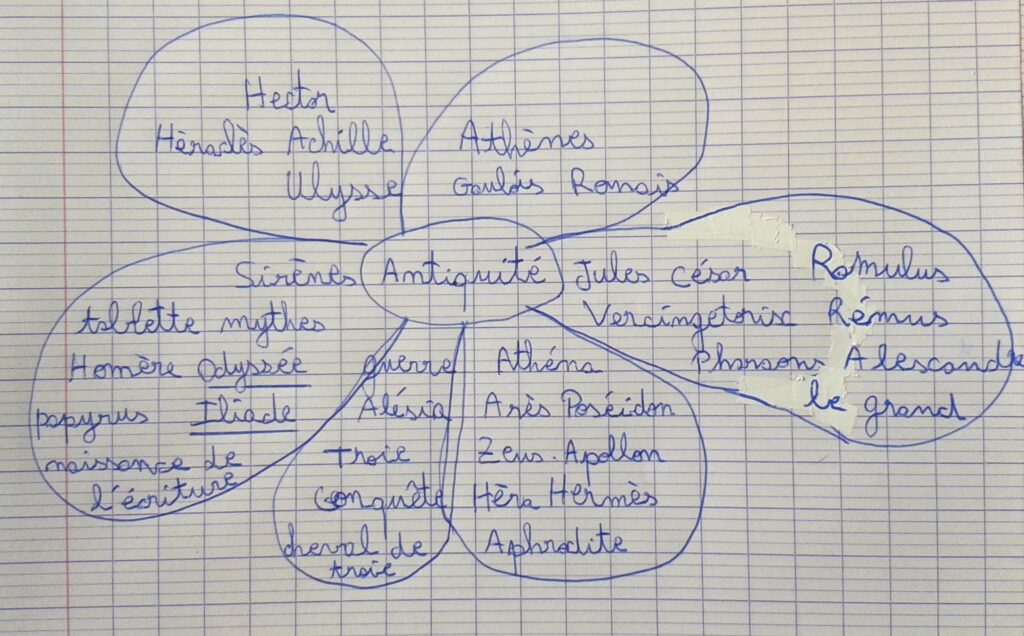 Hector
Héraclès Achille
Ulysse
Athènes
Gaulois Romais
Antiquité
Jules César Romulus
Vercingétorix Rémus
Pharaons Alescandre
le grand
Sirènes
tablette mythes
Homère Odyssée
papyrus Iliade
naissance de
l'écriture
guerre
Alésia
troie
conquête
cheval de
troie
Athéna
Arès Poséidon
Zeus. Apollon
Héra Hermès
Aphrodite